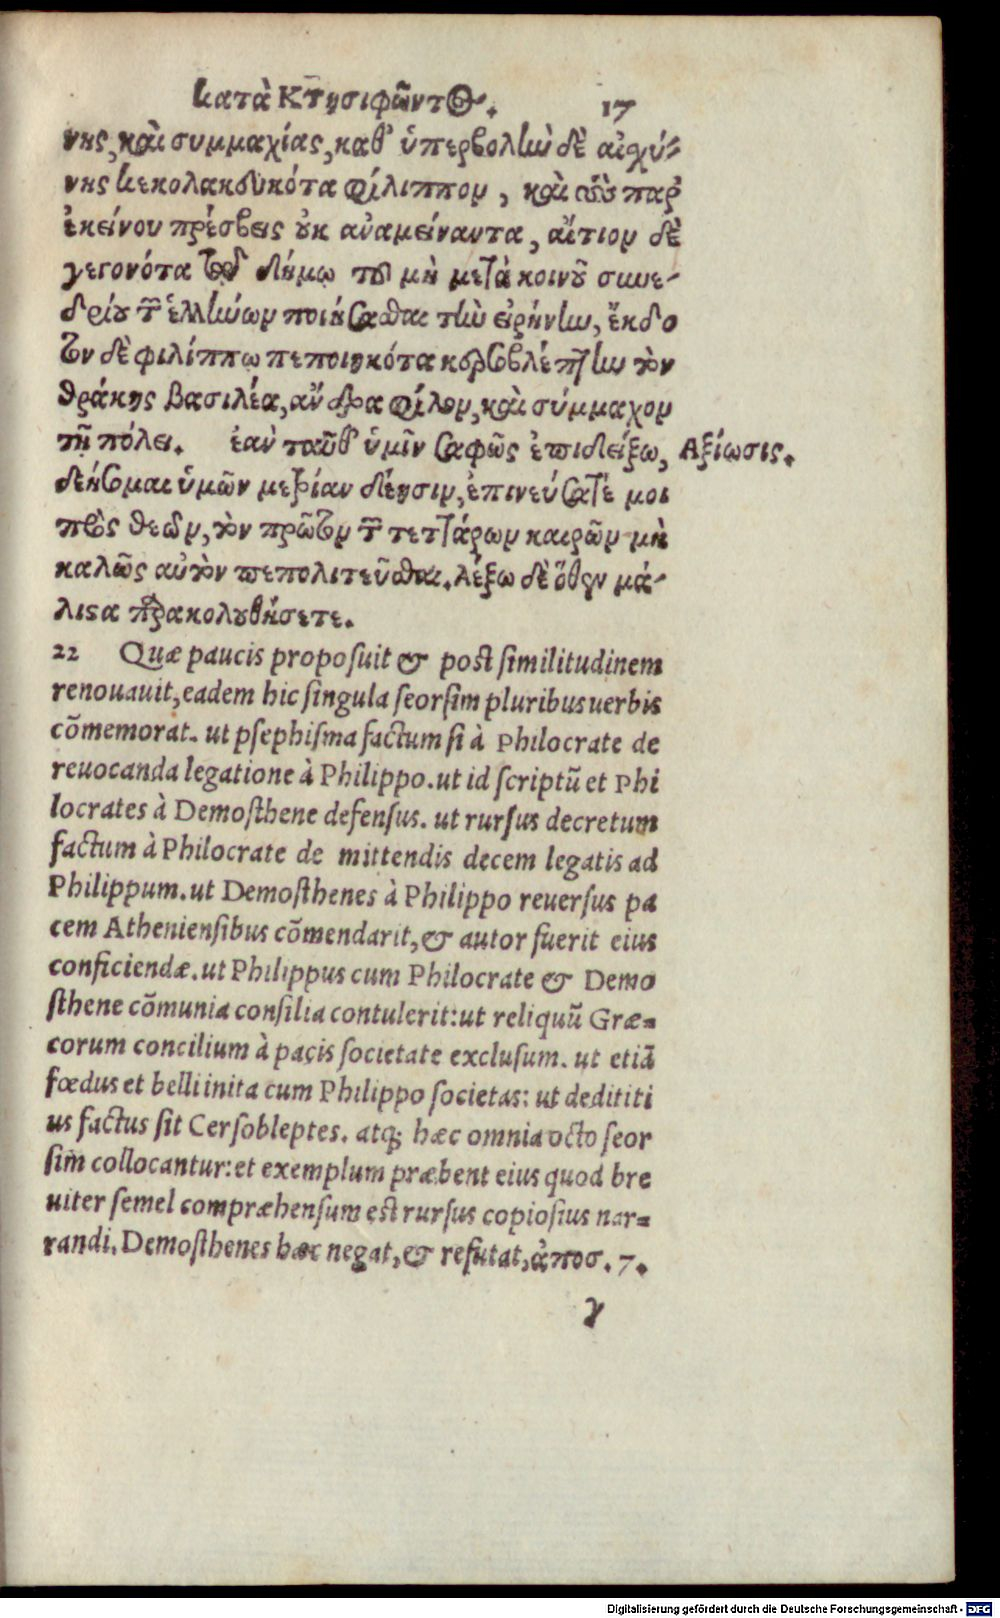 κατὰ Κτησιφῶντος. 17
νης, καὶ συμμαχίας, καθ’ ὑπερβολὴν δὲ αἰσχύ-
νης κεκολακευκότα φίλιππον, καὶ τοὺς παρ’
ἐκείνου πρέσβεις οὐκ αὐαμείναντα, αἴτιον δὲ
γεγονότα τῷ δήμῳ τοῦ μὴ μετὰ κοινοῦ συνε-
δρίου τῶν ἑλλήνων ποιήσασθαι τὴν εἰρήνην, ἔκδο
τον δὲ φιλίππῳ πεποιηκότα κερσοβλέπτην τὸν
θράκης βασιλέα, ἄνδρα φίλον, καὶ σύμμαχον
τῇ πόλει. ἐαν ταῦθ’ ὑμῖν σαφῶς ἐπιδείξω, Αξίωσις.
δεήσομαι ὑμῶν μετρίαν δέησιν, ἐπινεύσατέ μοι
πρὸς θεῶν, τὸν πρῶτον τῶν τεττάρων καιρῶν μὴ
καλῶς αὐτὸν πεπολιτεῦσθαι. λέξω δὲ ὅθεν μά-
λιστα παρακολουθήσετε.
22 Quæ paucis proposuit & post similitudinem
renouauit, eadem hic singula seorsim pluribus uerbis
cõmemorat. ut psephisma factum si à Philocrate de
reuocanda legatione à Philippo. ut id scriptũ et Phi
locrates à Demosthene defensus. ut rursus decretum
factum à Philocrate de mittendis decem legatis ad
Philippum. ut Demosthenes à Philippo reuersus pa
cem Atheniensibus cõmendarit, & autor fuerit eius
conficiendæ. ut Philippus cum Philocrate & Demo
sthene cõmunia consilia contulerit: ut reliquũ Græ=
corum concilium à pacis societate exclusum. ut etiã
fœdus et belli inita cum Philippo societas: ut dedititi
us factus sit Cersobleptes. atq; hæc omnia octo seor
sim collocantur: et exemplum præbent eius quod bre
uiter semel compræhensum est rursus copiosius nar=
randi. Demosthenes hæc negat, & refutat, ἀποσ. 7.
γ
Digitalisierung gefördert durch die Deutsche Forschungsgemeinschaft - DFG